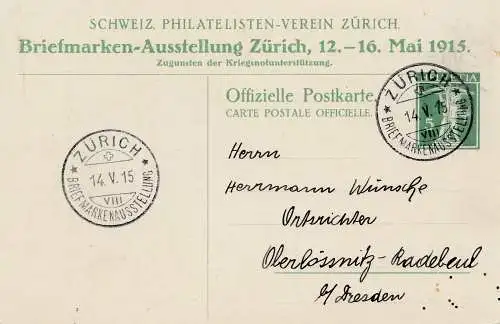 SCHWEIZ. PHILATELISTEN-VEREIN ZÜRICH.
Briefmarken-Ausstellung Zürich, 12.–16. Mai 1915.
Zugunsten der Kriegsnotunterstützung.
Offizielle Postkarte.
CARTE POSTALE OFFICIELLE.
ZÜRICH
14.V.15
VIII
BRIEFMARKENAUSSTELLUNG
5
ZÜRICH
14.V.15
VIII
BRIEFMARKENAUSSTELLUNG
Herrn
Herrmann Wünsche
Ortsrichter
Oberlössnitz-Radebeul
b/Dresden